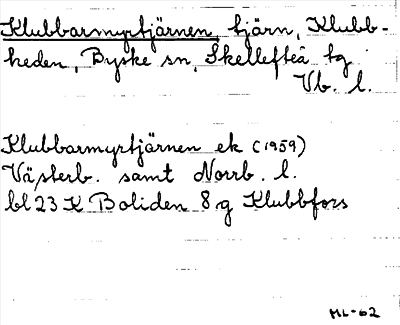 Klubbarmyrtjärnen, tjärn, Klubb-
heden, Byske sn, Skellefteå tg
Vb. l.
Klubbarmyrtjärnen ek (1959)
Västerb. samt Norrb. l.
bl 23 K Boliden 8 g Klubbfors
ML-62